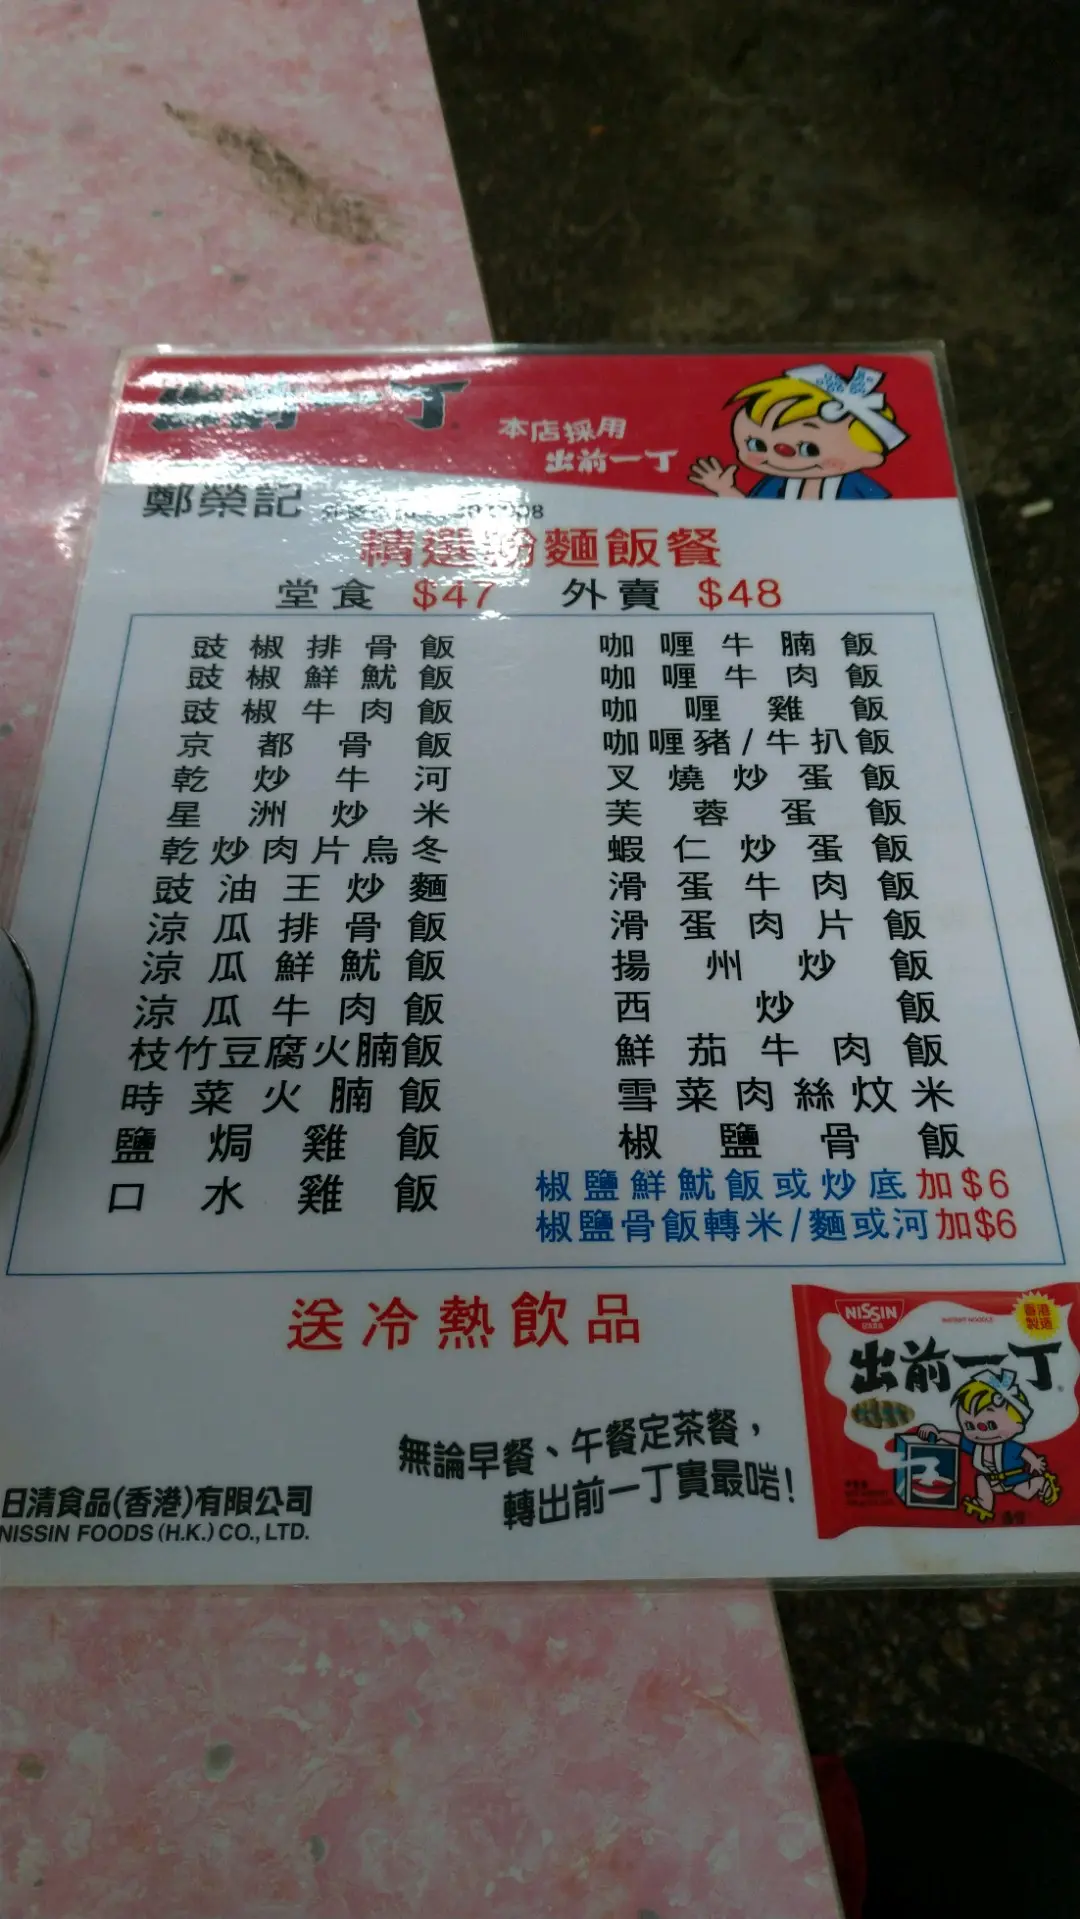 出前一丁
本店採用
出前一丁
鄭榮記
精選粉麵飯餐
堂食 $47 外賣 $48
豉椒排骨飯
豉椒鮮魷飯
豉椒牛肉飯
京都骨飯
乾炒牛河
星洲炒米
乾炒肉片烏冬
豉油王炒麵
涼瓜排骨飯
涼瓜鮮魷飯
涼瓜牛肉飯
枝竹豆腐火腩飯
時菜火腩飯
鹽焗雞飯
口水雞飯
咖喱牛腩飯
咖喱牛肉飯
咖喱雞飯
咖喱豬/牛扒飯
叉燒炒蛋飯
芙蓉蛋飯
蝦仁炒蛋飯
滑蛋牛肉飯
滑蛋肉片飯
揚州炒飯
西炒飯
鮮茄牛肉飯
雪菜肉絲炆米
椒鹽骨飯
椒鹽鮮魷飯或炒底加$6
椒鹽骨飯轉米/麵或河加$6
送冷熱飲品
無論早餐、午餐定茶餐，
轉出前一丁實最啱!
日清食品(香港)有限公司
NISSIN FOODS (H.K.) CO., LTD.
NISSIN
香港
製造
出前一丁